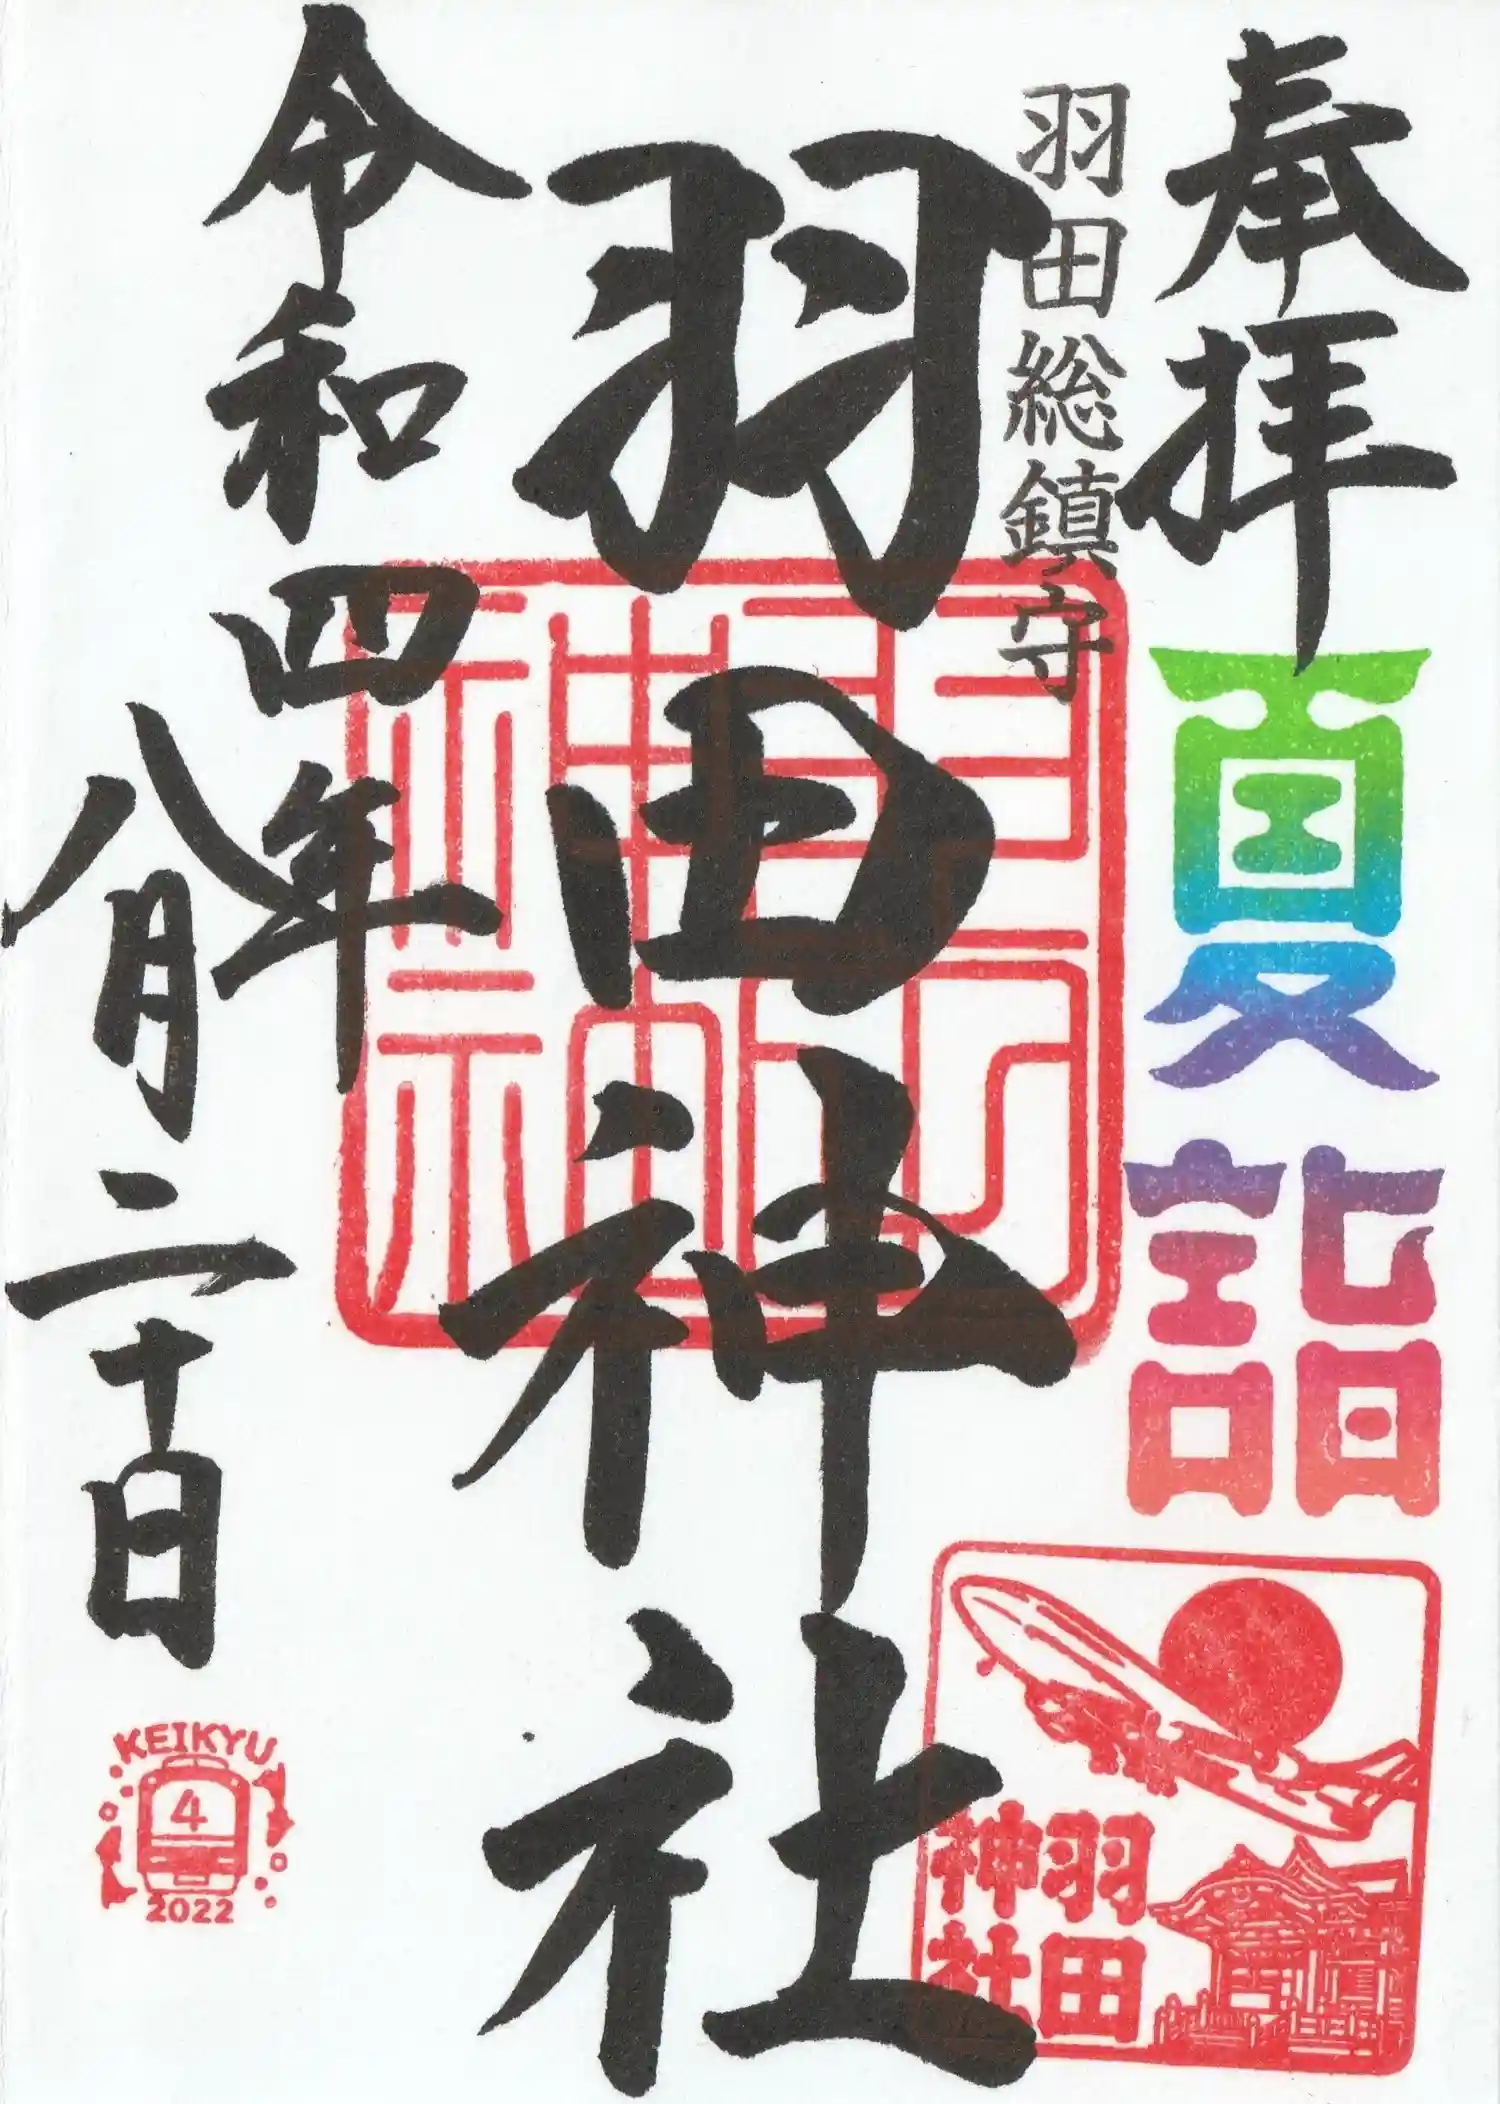 奉拝
夏詣
羽田総鎮守
羽田神社
羽田
神社
令和四年
八月二十日
KEIKYU
4
2022